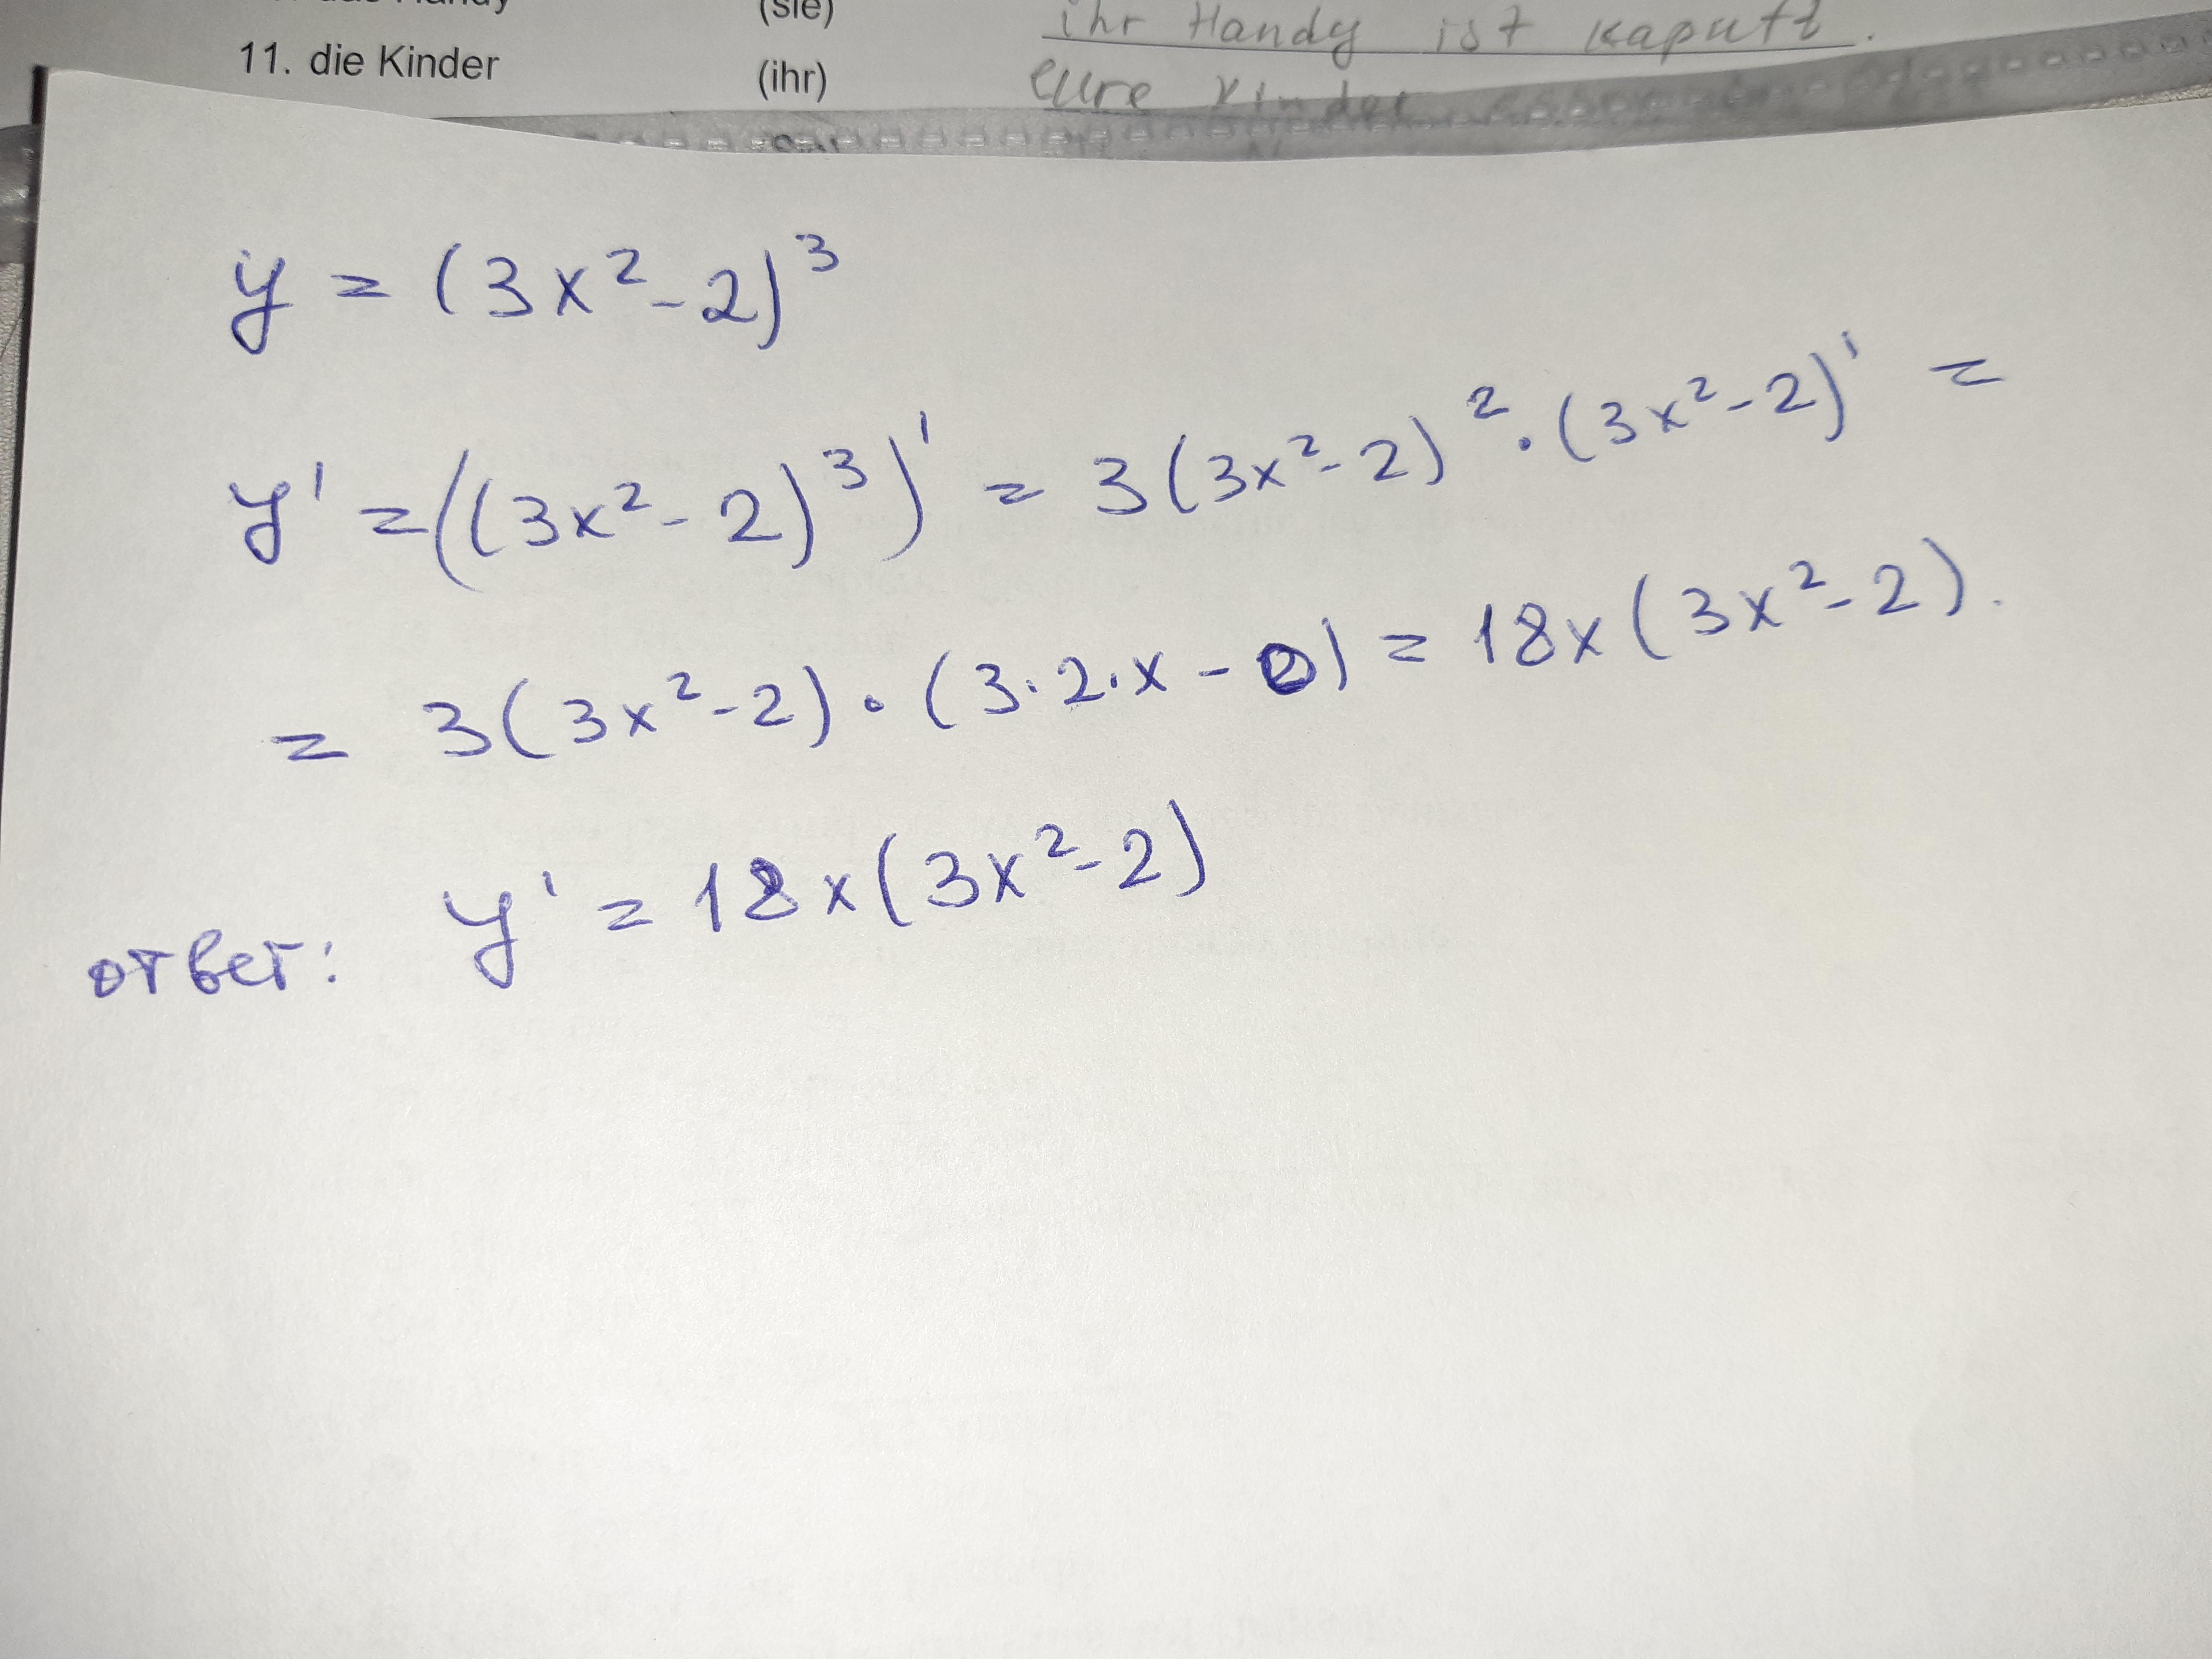 (sie) ihr Handy ist kaputt.
11. die Kinder (ihr) eure Kinder
y = (3x²-2)³
y' = ((3x²-2)³)' = 3(3x²-2)²·(3x²-2)' =
= 3(3x²-2)·(3·2·x-0) = 18x(3x²-2).
ответ: y' = 18x(3x²-2)